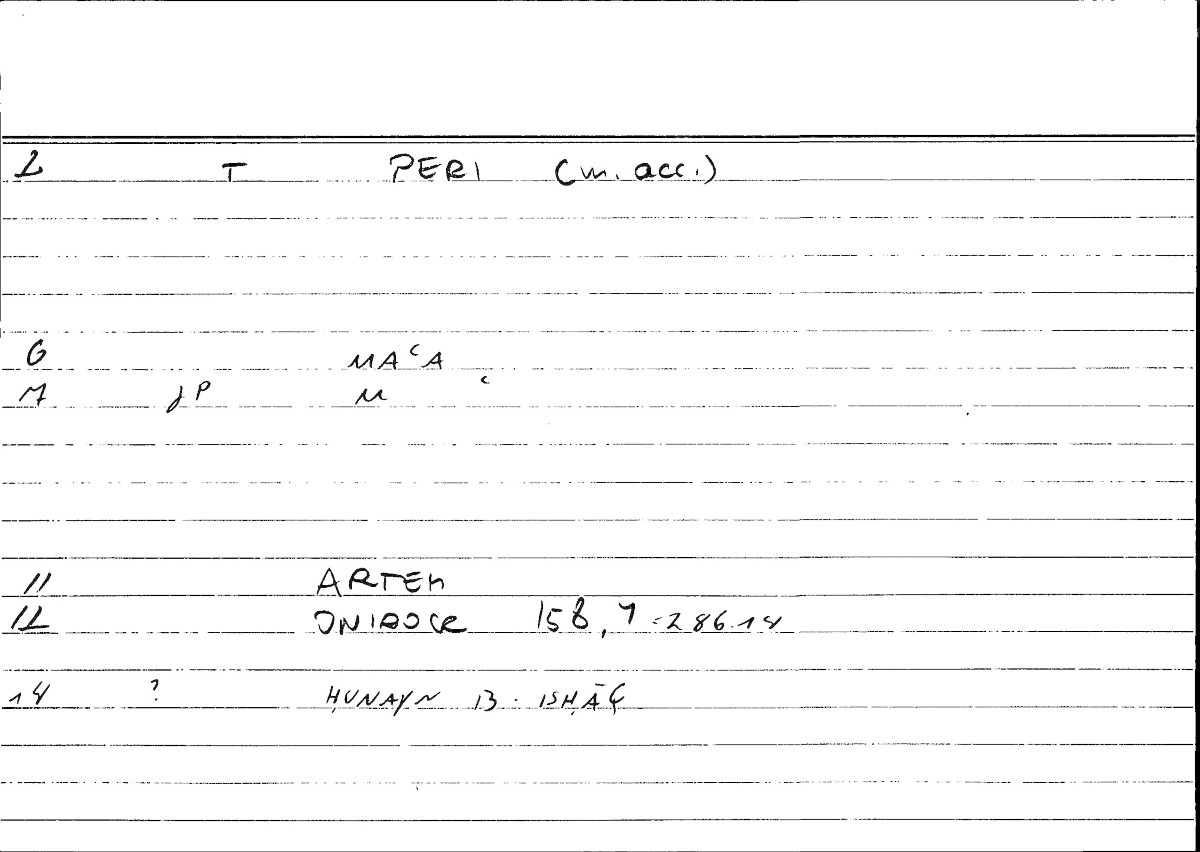 2 T PERI (m. acc.)
6 MAʿA
7 JP M ʿ
11 ARTEM
12 ONIROCR 158,7 = 286.14
14 ? ḤUNAYN B. ISḤĀḲ